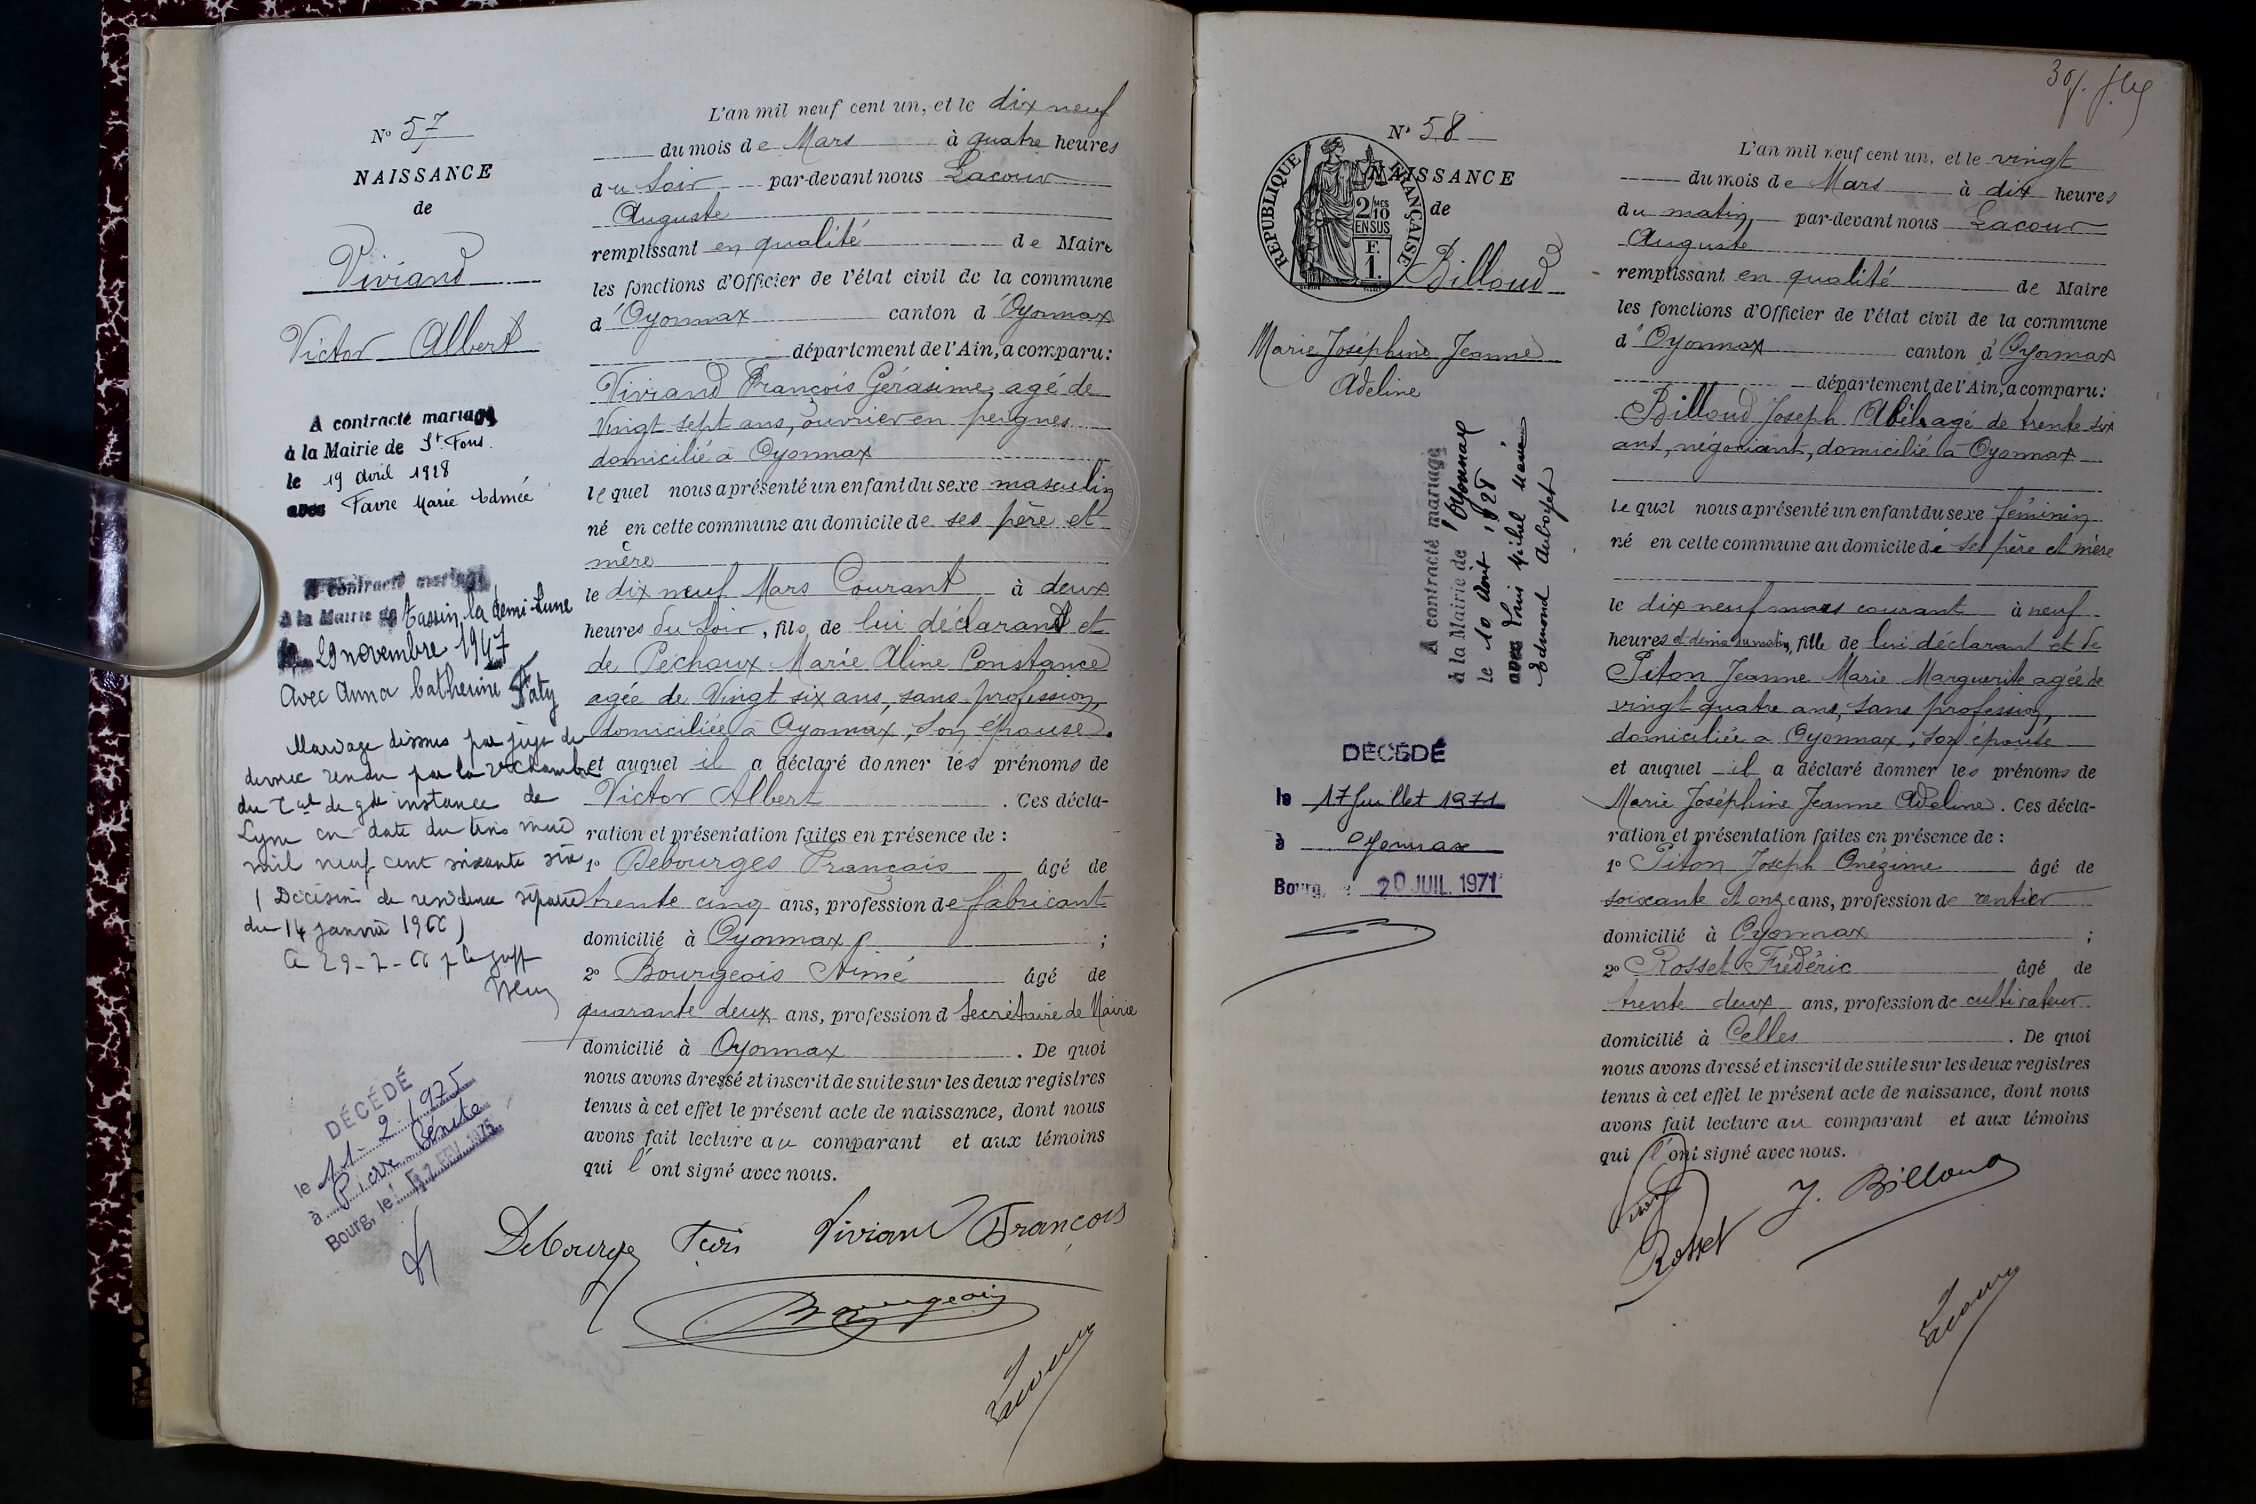 N° 57
NAISSANCE
de
Viviand
Victor Albert
A contracté mariage
à la Mairie de St Fons
le 19 avril 1928
avec Favre Marie Edmée
A contracté mariage
à la Mairie de Tassin la demi-Lune
le 29 novembre 1947
avec Anna Catherine Faty
Mariage dissous par jugt de
divorce rendu par la 2e chambre
du Tal de gde instance de
Lyon en date du trois
mil neuf cent soixante six
(Décision de résidence séparée
du 14 janvier 1966)
DÉCÉDÉ
le 11-2-1975
à Pierre Bénite
Bourg, le FEV. 1975
L'an mil neuf cent un, et le dix neuf
du mois de Mars à quatre heures
du soir par-devant nous Lacour
Auguste
remplissant en qualité de Maire
les fonctions d'Officier de l'état civil de la commune
d'Oyonnax canton d'Oyonnax
département de l'Ain, a comparu:
Viviand François Gérasime, agé de
Vingt sept ans, ouvrier en peignes
domicilié à Oyonnax
lequel nous a présenté un enfant du sexe masculin
né en cette commune au domicile de ses père et
mère
le dix neuf Mars Courant à deux
heures du soir, fils de lui déclarant et
de Pechoux Marie Aline Constance
agée de Vingt six ans, sans profession,
domiciliée à Oyonnax, son épouse.
et auquel il a déclaré donner les prénoms de
Victor Albert. Ces décla-
ration et présentation faites en présence de :
1° Debourges Français âgé de
trente cinq ans, profession de fabricant
domicilié à Oyonnax ;
2° Bourgeois Aimé âgé de
quarante deux ans, profession d Secrétaire de Mairie
domicilié à Oyonnax. De quoi
nous avons dressé et inscrit de suite sur les deux registres
tenus à cet effet le présent acte de naissance, dont nous
avons fait lecture au comparant et aux témoins
qui l'ont signé avec nous.
Debourge Fçois Viviand François
Bourgeois
Lacour
N° 58
NAISSANCE
de
RÉPUBLIQUE FRANÇAISE
2/10 MES
EN SUS
F.
1.
Billoud
Marie Joséphine Jeanne
Adeline
A contracté mariage
à la Mairie de Oyonnax
le 10 Août 1928
avec Louis Michel Marie
Edmond Auboyet
DÉCÉDÉ
le 17 Juillet 1971
à Oyonnax
Bourg, le 20 JUIL. 1971
L'an mil neuf cent un, et le vingt
du mois de Mars à dix heures
du matin par-devant nous Lacour
Auguste
remplissant en qualité de Maire
les fonctions d'Officier de l'état civil de la commune
d'Oyonnax canton d'Oyonnax
département de l'Ain, a comparu:
Billoud Joseph Abel agé de trente six
ans, négociant, domicilié à Oyonnax
lequel nous a présenté un enfant du sexe féminin
né en cette commune au domicile de ses père et mère
le dix neuf mars courant à neuf
heures et demie du matin, fille de lui déclarant et de
Piton Jeanne Marie Marguerite agée de
vingt quatre ans, sans profession,
domiciliée à Oyonnax, son épouse
et auquel il a déclaré donner les prénoms de
Marie Joséphine Jeanne Adeline. Ces décla-
ration et présentation faites en présence de :
1° Piton Joseph Onézime âgé de
soixante et onze ans, profession de rentier
domicilié à Oyonnax ;
2° Rosset Frédéric âgé de
trente deux ans, profession de cultivateur
domicilié à Celles. De quoi
nous avons dressé et inscrit de suite sur les deux registres
tenus à cet effet le présent acte de naissance, dont nous
avons fait lecture au comparant et aux témoins
qui l'ont signé avec nous.
J. Billoud
Rosset
Lacour